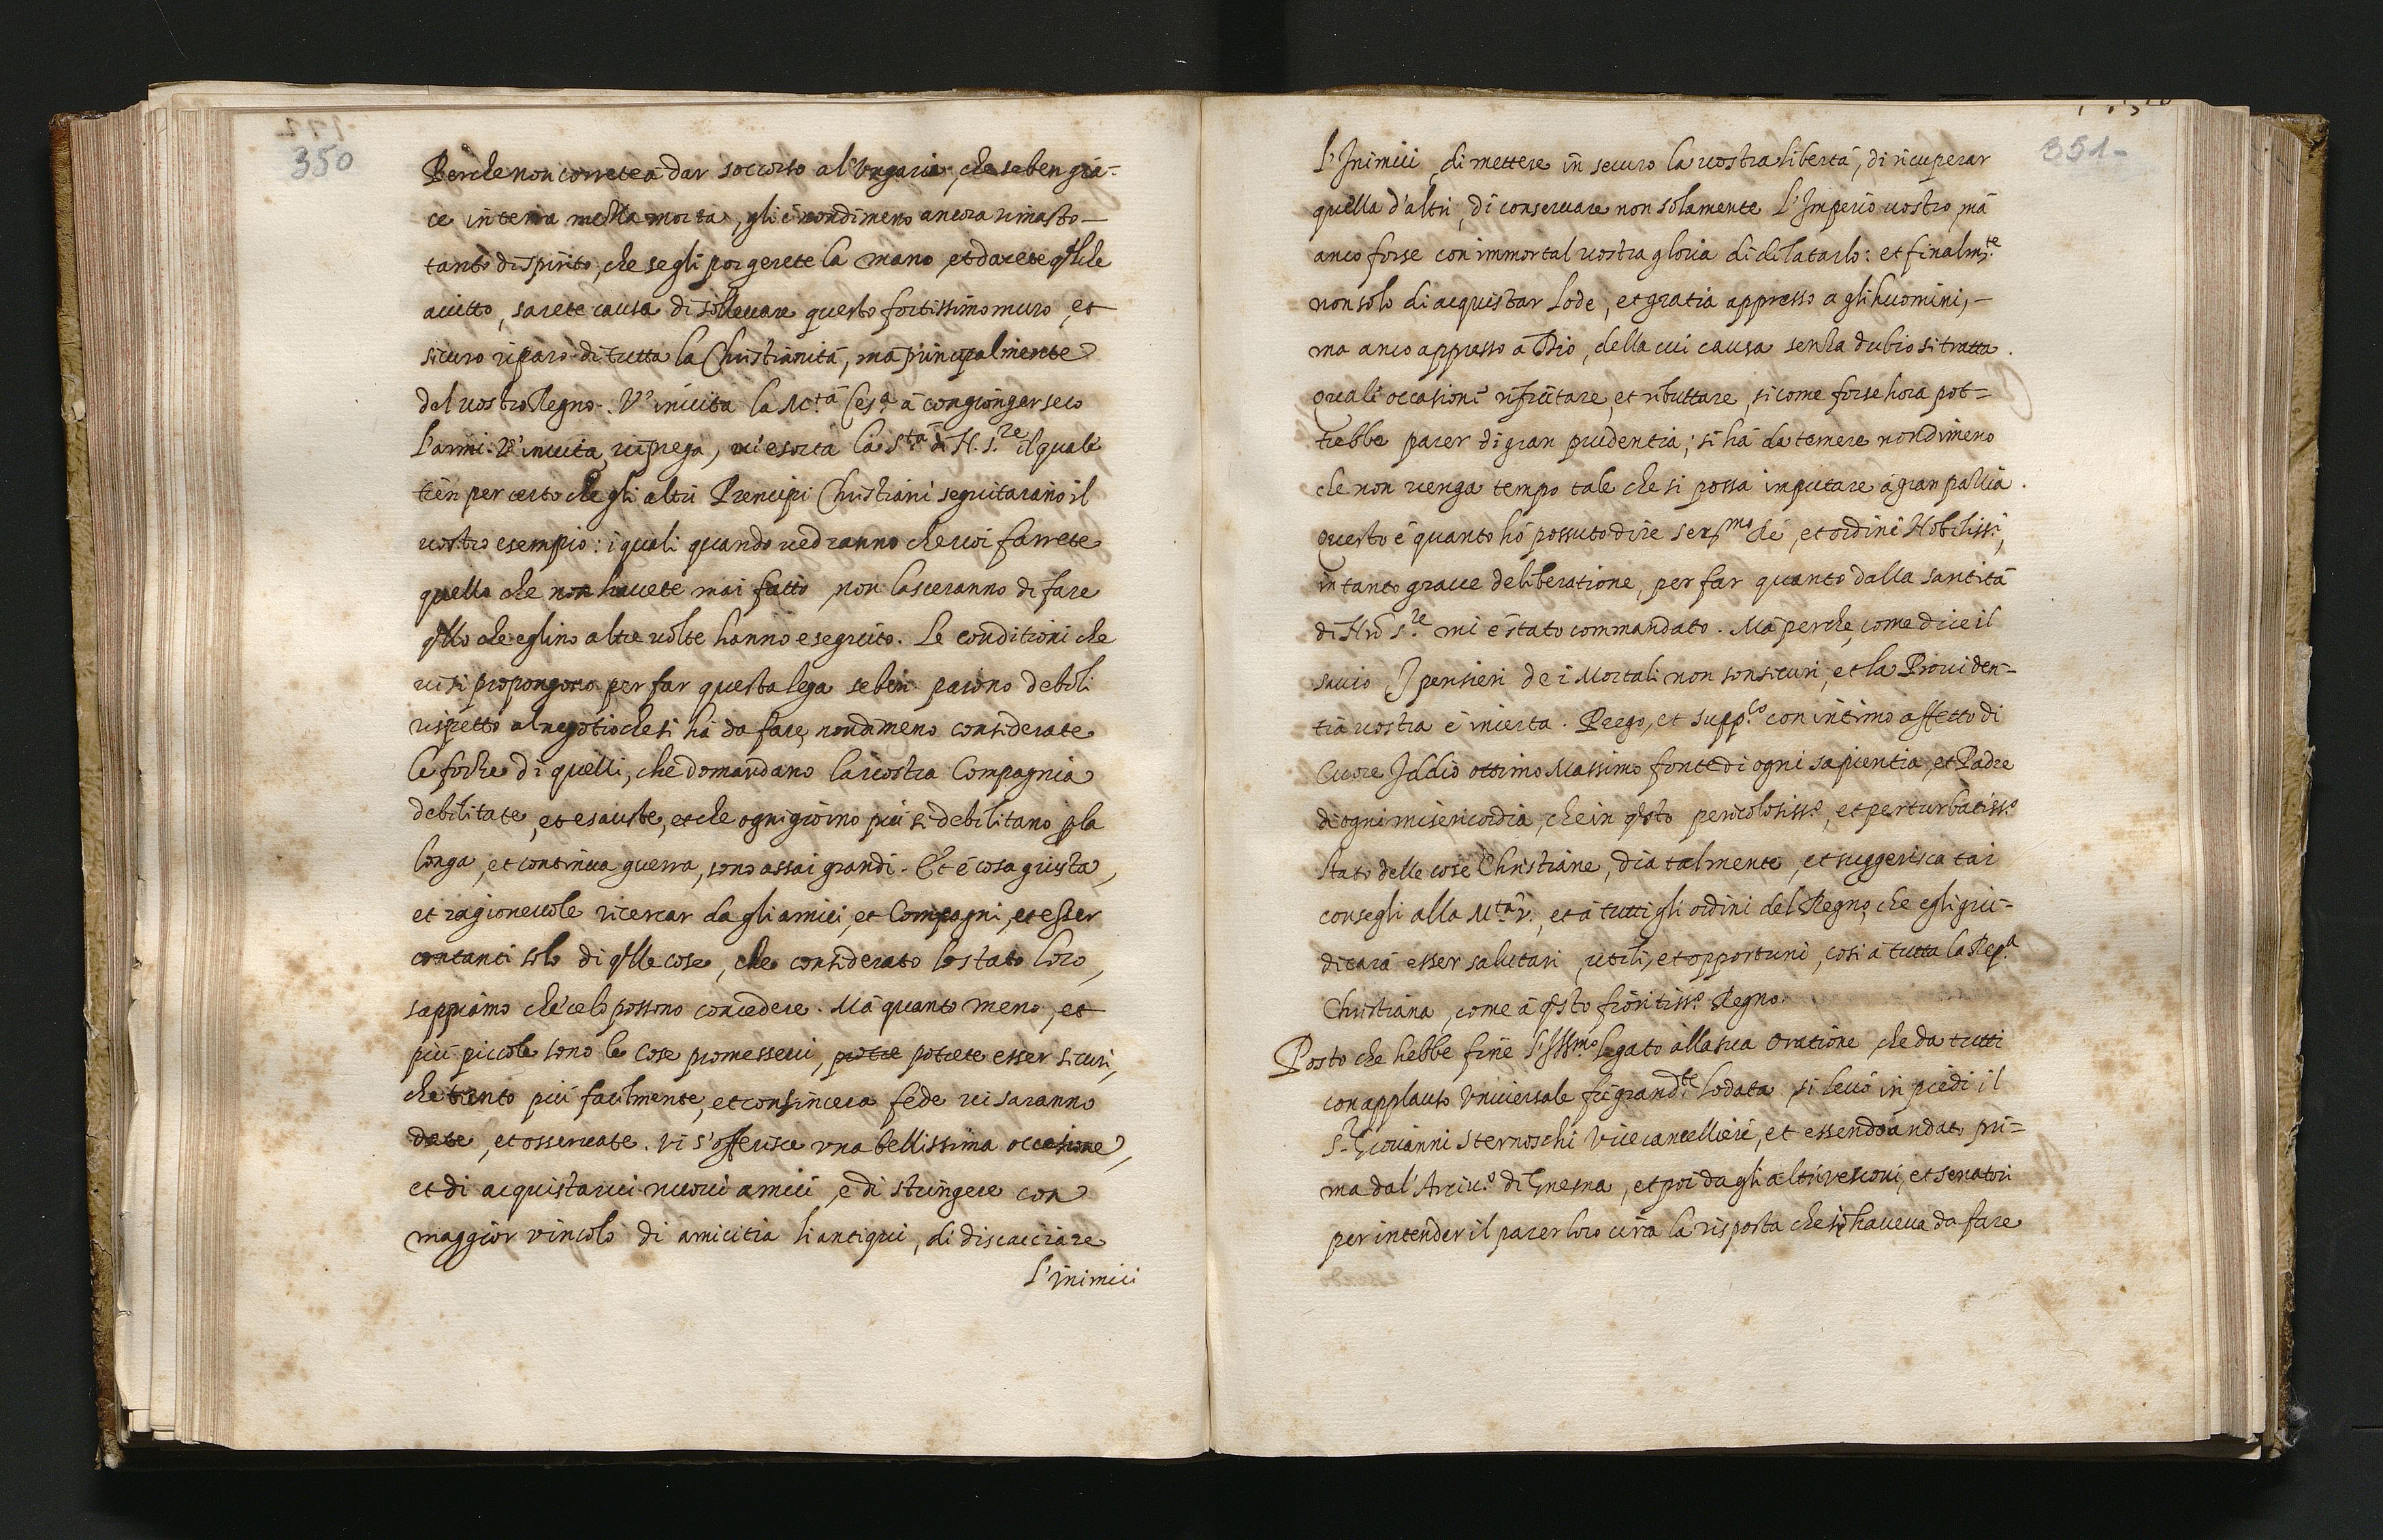 350
Perche non correte á dar soccorso al'Ungaria, che se ben gia-
ce in terra mezza morta, gli é nondimeno ancora rimasto
tanto di spirito, che se gli porgerete la mano, et darete qlche
aiutto, sarete causa di sollevare questo fortissimo muro, et
sicuro riparo di tutta la Christianitá, má principalmente
del vostro Regno. V'invita la M.tá Ces.a á congionger seco
l'armi. V'invita, vi prega, vi esorta la S.tá di N. S.re il quale
tien per certo che gli altri Prencipi Christiani seguitarano il
vostro esempio: i quali quando vedranno che voi farrete
quello che non havete mai fatto non lasceranno di fare
qllo che eglino altre volte hanno eseguito. Le conditioni che
vi si propongono per far questa lega se ben paiono deboli
rispetto al negotio che si há da fare, nondimeno considerate
le forze di quelli, che domandano la vostra Compagnia
debilitate, et esauste, et che ogni giorno piú si debilitano p la
longa, et continua guerra, sono assai grandi. Et é cosa giusta,
et ragionevole ricercar da gli amici, et Compagni, et esser
contanti solo di qlle cose, che considerato lo stato loro,
sappiamo che celo possono concedere. Má quanto meno, et
piú piccole sono le cose promessevi, potre potrete esser sicuri,
che tanto piú facilmente, et con sincera fede vi saranno
date, et osservate. Vi s'offerisce una bellissima occasione,
et di acquistarvi nuovi amici, e di stringere con
maggior vincolo di amicitia li antiqui, di discacciare
l'inimici
351
L'Inimici, di mettere in securo la vostra libertá, di ricuperar
quella d'altri, di conservare non solamente l'Imperio vostro, má
anco forse con immortal vostra gloria di dilatarlo: et finalm.te
non solo di acquistar lode, et gratia appresso a gli huomini,
ma anco appresso á Dio, della cui causa senza dubio si tratta.
Quali occasioni rifiutare, et ributtare, si come forse hora pot-
trebbe parer di gran prudentia; si há da temere nondimeno
che non venga tempo tale che si possa imputare á gran pazzia.
Questo é quanto hó possuto dire Ser.mo Ré, et ordini Nobiliss.i,
in tanto grave deliberatione, per far quanto dalla santitá
di Nro S.re mi é stato commandato. Má perche, come dice il
savio I pensieri de i Mortali non son sicuri, et la Providen-
tia vostra é incerta. Prego, et supp.co con intimo affetto di
Cuore Iddio ottimo Massimo fonte di ogni sapientia, et Padre
di ogni misericordia, che in qsto pericolosiss.o, et perturbatiss.o
stato delle cose Christiane, dia talmente, et suggerisca tai
consegli alla M.tá V., et á tutti gli ordini del Regno, che egli giu-
dicará esser salutari, utili, et opportuni, cosi á tutta la Rep.a
Christiana, come á qsto fioritiss.o Regno.
Posto che hebbe fine l'Ill.mo legato alla sua Oratione che da tutti
con applauso universale fú grand.te lodata si levó in piedi il
S.r Giovanni Sternoschi Vicecancelliere, et essendo andato pri-
ma dal'Arciv.o di Gnesna, et poi da gli altri vescovi, et senatori
per intender il parer loro circa la risposta che si haveva da fare